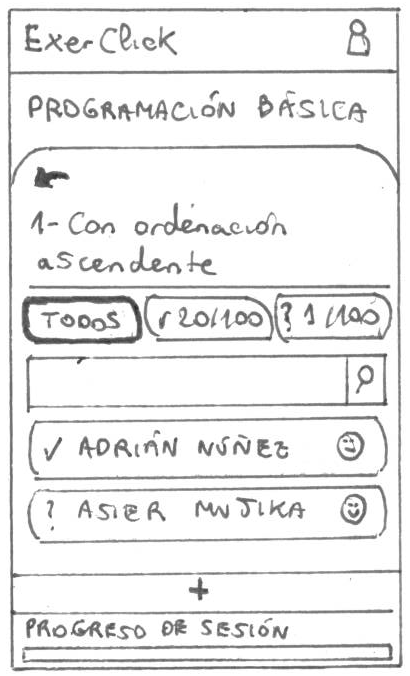 ExerClick
PROGRAMACIÓN BÁSICA
1- Con ordenación
ascendente
TODOS ✓ 20/100 ? 1/100
✓ ADRIÁN NÚÑEZ
? ASIER MUJIKA
+
PROGRESO DE SESIÓN